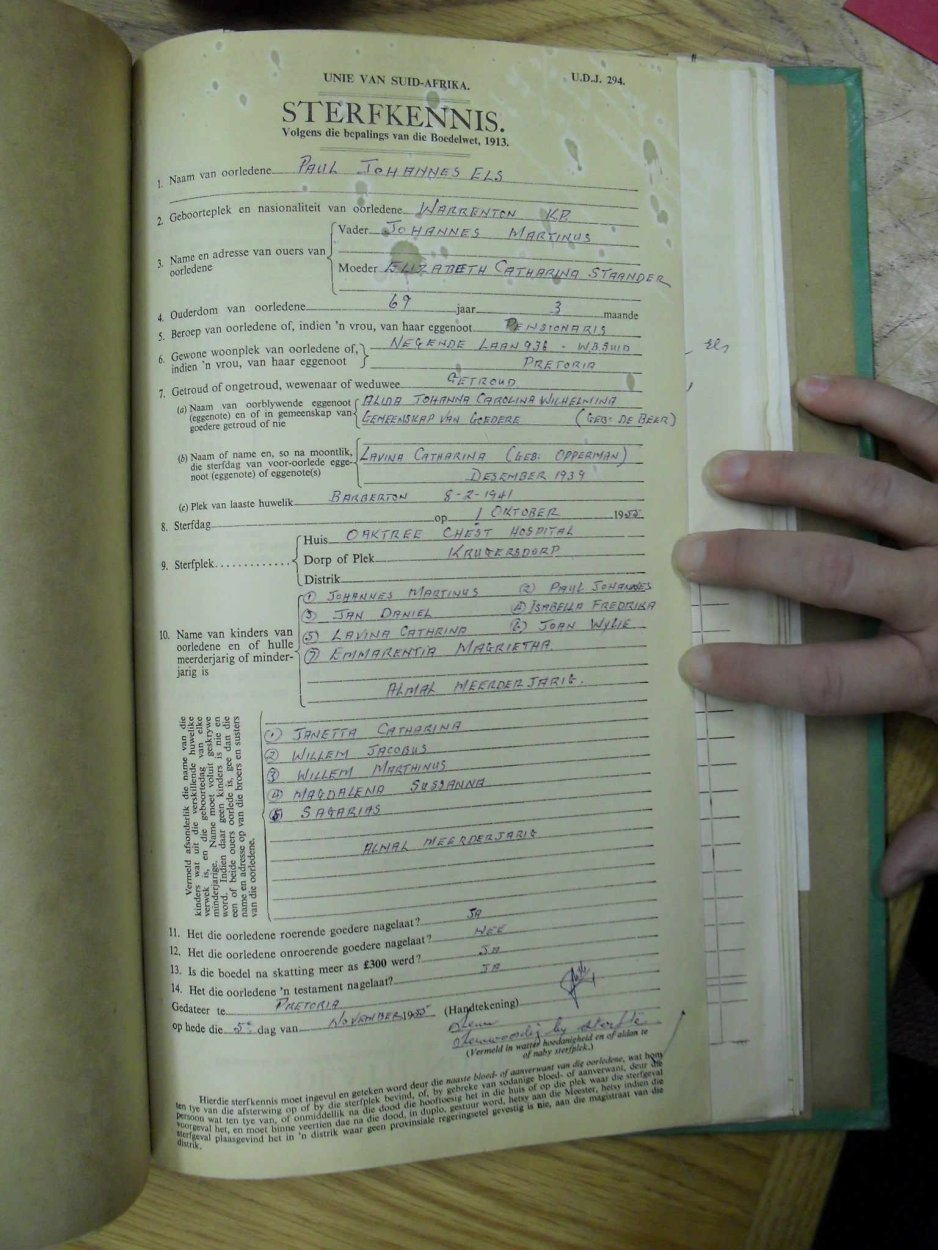 UNIE VAN SUID-AFRIKA. U.D.J. 294.
STERFKENNIS.
Volgens die bepalings van die Boedelwet, 1913.
1. Naam van oorledene PAUL JOHANNES ELS
2. Geboorteplek en nasionaliteit van oorledene WARRENTON KP.
3. Name en adresse van ouers van oorledene
Vader JOHANNES MARTINUS
Moeder ELIZABETH CATHARINA STAANDER
4. Ouderdom van oorledene 69 jaar 3 maande
5. Beroep van oorledene of, indien 'n vrou, van haar eggenoot PENSIONARIS
6. Gewone woonplek van oorledene of, NEGENDE LAAN 936 - WBSUID
indien 'n vrou, van haar eggenoot PRETORIA
7. Getroud of ongetroud, wewenaar of weduwee GETROUD
(a) Naam van oorblywende eggenoot ALIDA JOHANNA CAROLINA WILHELMINA
(eggenote) en of in gemeenskap van GEMEENSKAP VAN GOEDERE (GEB: DE BEER)
goedere getroud of nie
(b) Naam of name en, so na moontlik, LAVINA CATHARINA (GEB: OPPERMAN)
die sterfdag van voor-oorlede egge-
noot (eggenote) of eggenote(s) DESEMBER 1939
(c) Plek van laaste huwelik BARBERTON 8-2-1941
8. Sterfdag op 1 OKTOBER 1955
9. Sterfplek
Huis OAKTREE CHEST HOSPITAL
Dorp of Plek KRUGERSDORP
Distrik
10. Name van kinders van
oorledene en of hulle
meerderjarig of minder-
jarig is
(1) JOHANNES MARTINUS (2) PAUL JOHANNES
(3) JAN DANIEL (4) ISABELLA FREDRIKA
(5) LAVINA CATHRINA (6) JOAN WYLIE
(7) EMMARENTIA MAGRIETHA
ALMAL MEERDERJARIG.
Vermeld afsonderlik die name van die
kinders wat uit die verskillende huwelike
verwek is, en die geboortedag van elke
minderjarige. Name moet voluit geskrywe
word. Indien daar geen kinders is nie en
een of beide ouers oorlede is, gee dan die
name en adresse op van die broers en susters
van die oorledene.
(1) JANETTA CATHARINA
(2) WILLEM JACOBUS
(3) WILLEM MARTHINUS
(4) MAGDALENA SUSSANNA
(5) SAGARIAS
ALMAL MEERDERJARIG
11. Het die oorledene roerende goedere nagelaat? JA
12. Het die oorledene onroerende goedere nagelaat? NEE
13. Is die boedel na skatting meer as £300 werd? JA
14. Het die oorledene 'n testament nagelaat? JA
Gedateer te PRETORIA (Handtekening)
op hede die 5e dag van NOVEMBER 1955
by sterfte
(Vermeld in watter hoedanigheid en of aldan te
of naby sterfplek.)
Hierdie sterfkennis moet ingevul en geteken word deur die naaste bloed- of aanverwant van die oorledene, wat hom
ten tye van die afsterwing op of by die sterfplek bevind, of, by gebreke van sodanige bloed- of aanverwant, deur die
persoon wat ten tye van, of onmiddellik na die dood die hooftoesig het in die huis of op die plek waar die sterfgeval
voorgeval het, en moet binne veertien dae na die dood, in duplo, gestuur word, hetsy aan die Meester, hetsy indien die
sterfgeval plaasgevind het in 'n distrik waar geen provinsiale regeringsetel gevestig is nie, aan die magistraat van die
distrik.
Els